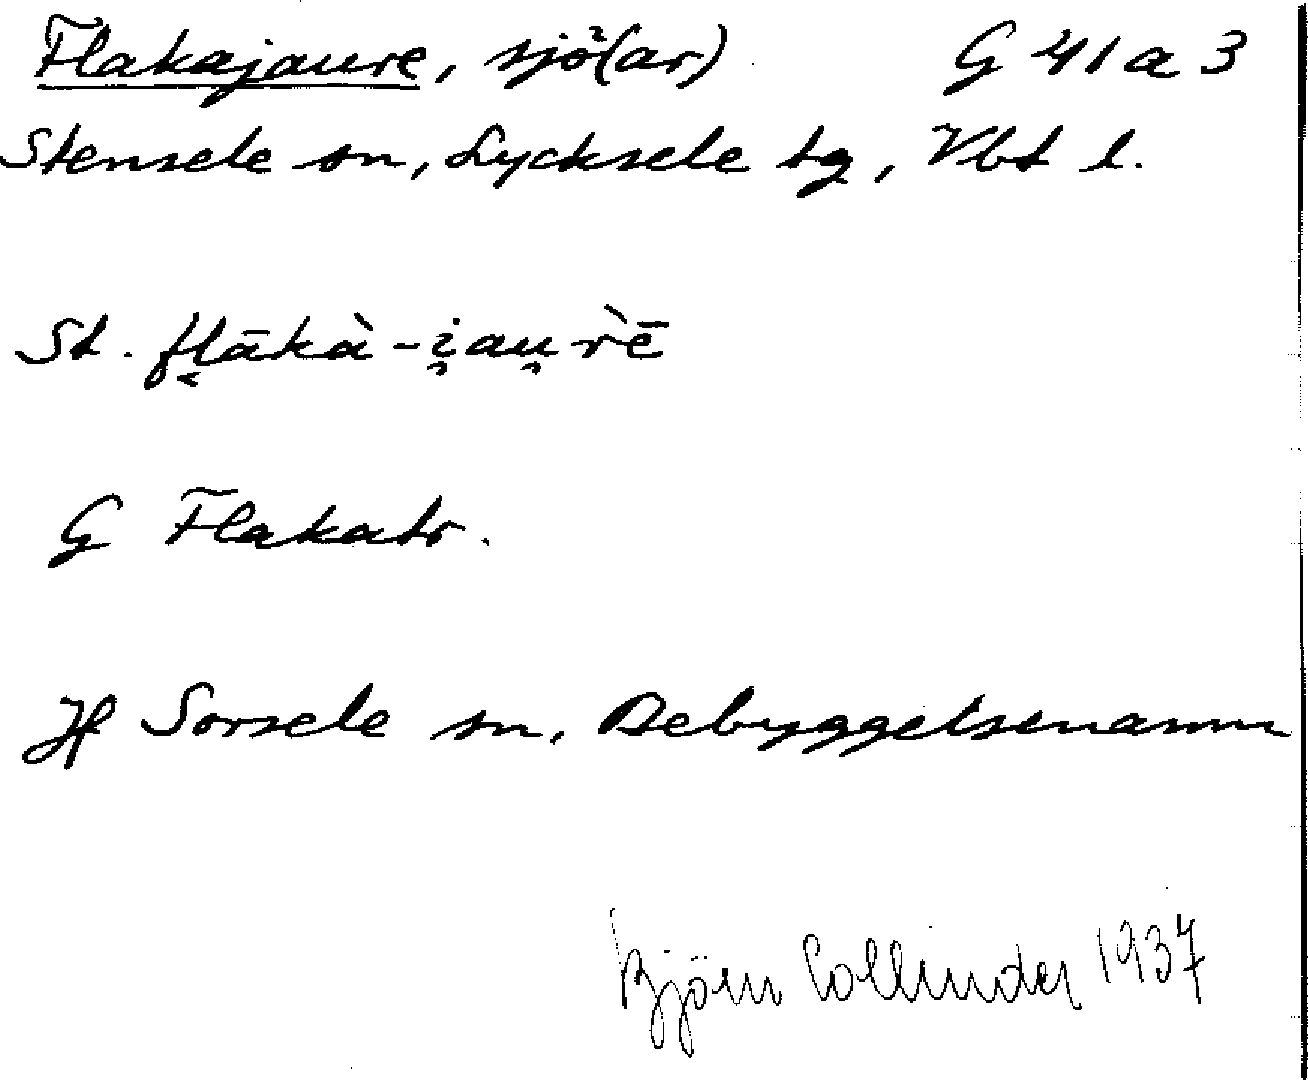 Flakajaure, sjö(ar) G 41 a 3
Stensele sn, Lycksele tg, Vbt l.
St. fl̬ākà-i̯au̯rè̄
G Flakatr.
Jf Sorsele sn, Bebyggelsenamn
Björn Collinder 1937